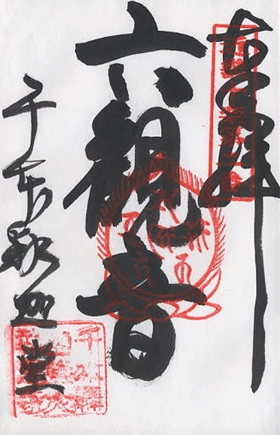 奉拝
六観音
千本釈迦堂